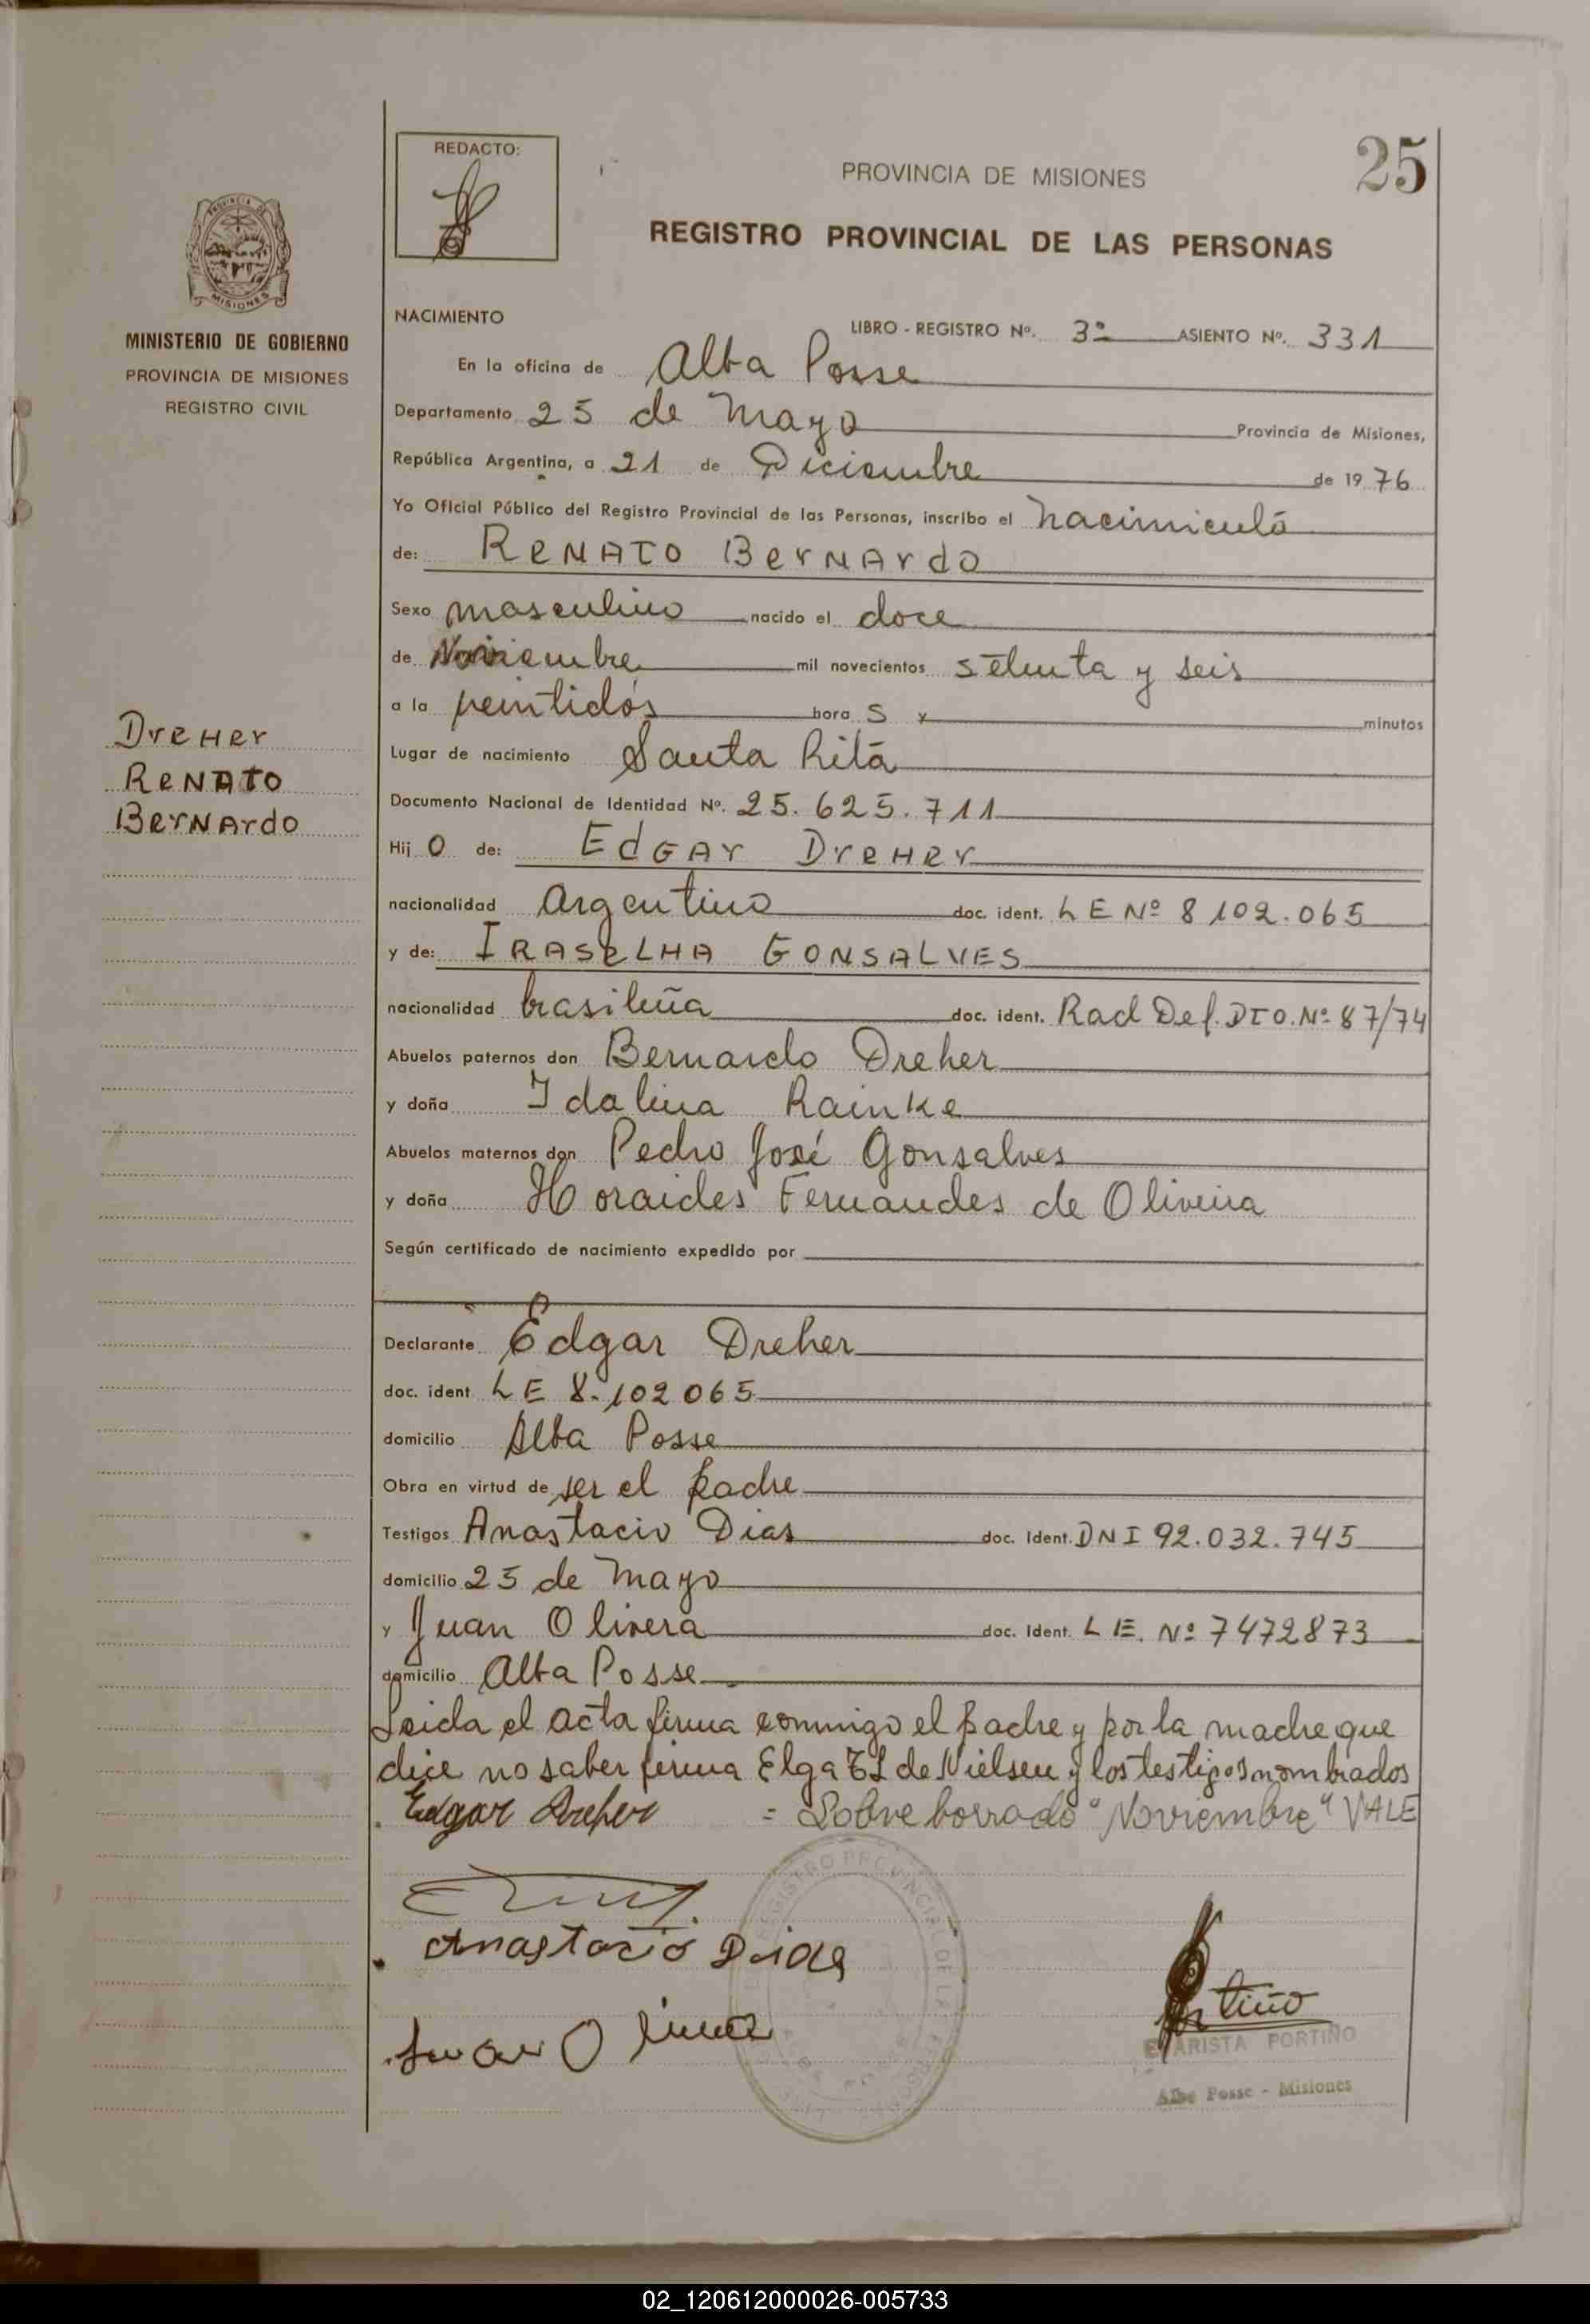 REDACTO:
25
PROVINCIA DE MISIONES
REGISTRO PROVINCIAL DE LAS PERSONAS
PROVINCIA DE
MISIONES
MINISTERIO DE GOBIERNO
PROVINCIA DE MISIONES
REGISTRO CIVIL
NACIMIENTO
LIBRO - REGISTRO Nº. 3º ASIENTO Nº. 331
En la oficina de Alba Posse
Departamento 25 de Mayo Provincia de Misiones,
República Argentina, a 21 de Diciembre de 1976
Yo Oficial Público del Registro Provincial de las Personas, inscribo el nacimiento
de: RENATO BerNArdo
Sexo masculino nacido el doce
de Noviembre mil novecientos setenta y seis
a la veintidós hora s y minutos
Dreher
RENATO
BerNArdo
Lugar de nacimiento Santa Rita
Documento Nacional de Identidad Nº. 25.625.711
Hij o de: EdGAr DreHer
nacionalidad Argentino doc. ident. LE Nº 8102.065
y de: IRASELHA GONSALVES
nacionalidad brasileña doc. ident. Rad Def. DTO. Nº 87/74
Abuelos paternos don Bernardo Dreher
y doña Idalina Rainke
Abuelos maternos don Pedro José Gonsalves
y doña Horaides Fernandes de Oliveira
Según certificado de nacimiento expedido por
Declarante Edgar Dreher
doc. ident LE 8.102065
domicilio Alba Posse
Obra en virtud de ser el padre
Testigos Anastacio Dias doc. Ident. DNI 92.032.745
domicilio 25 de Mayo
y Juan Olivera doc. Ident. LE. Nº 7472873
domicilio Alba Posse
Leida el acta firma conmigo el padre y por la madre que
dice no saber firma Elga de Nielsen y los testigos nombrados
Edgar Dreher = Sobre borrado "Noviembre" VALE
REGISTRO PROVINCIAL DE LAS PERSONAS
Anastacio Dias
Juan Olivera
Portiño
EVARISTA PORTIÑO
Alba Posse - Misiones
02_120612000026-005733